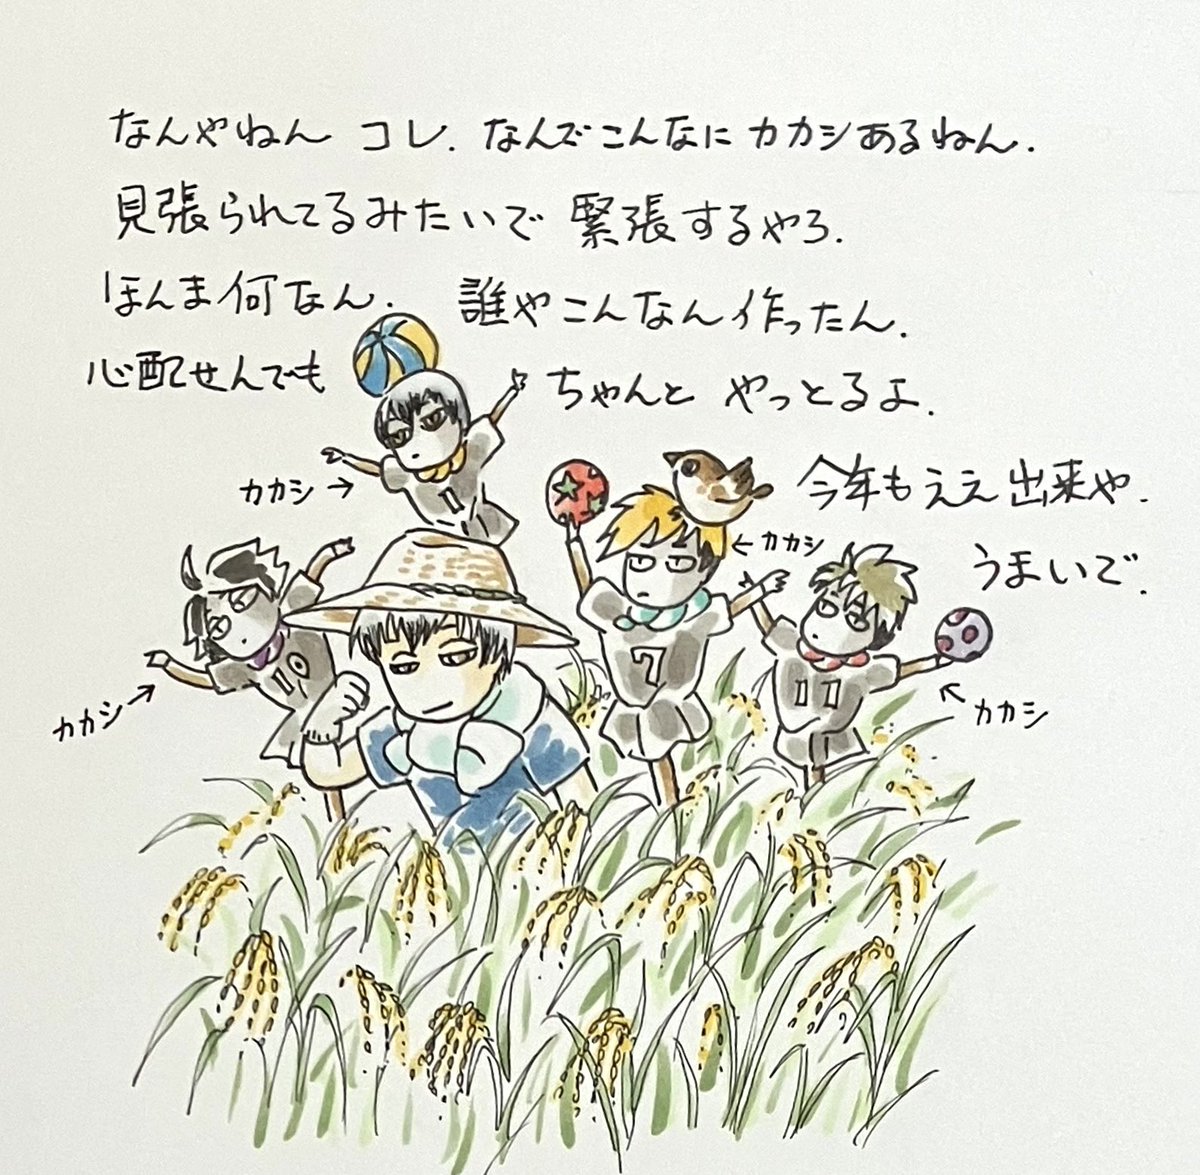 なんやねん コレ. なんでこんなに カカシあるねん.
見張られてるみたいで 緊張するやろ.
ほんま何なん. 誰やこんなん作ったん.
心配せんでも ちゃんと やっとるよ.
カカシ→
今年もええ出来や.
←カカシ
うまいで.
カカシ→
←カカシ
1
10
7
11